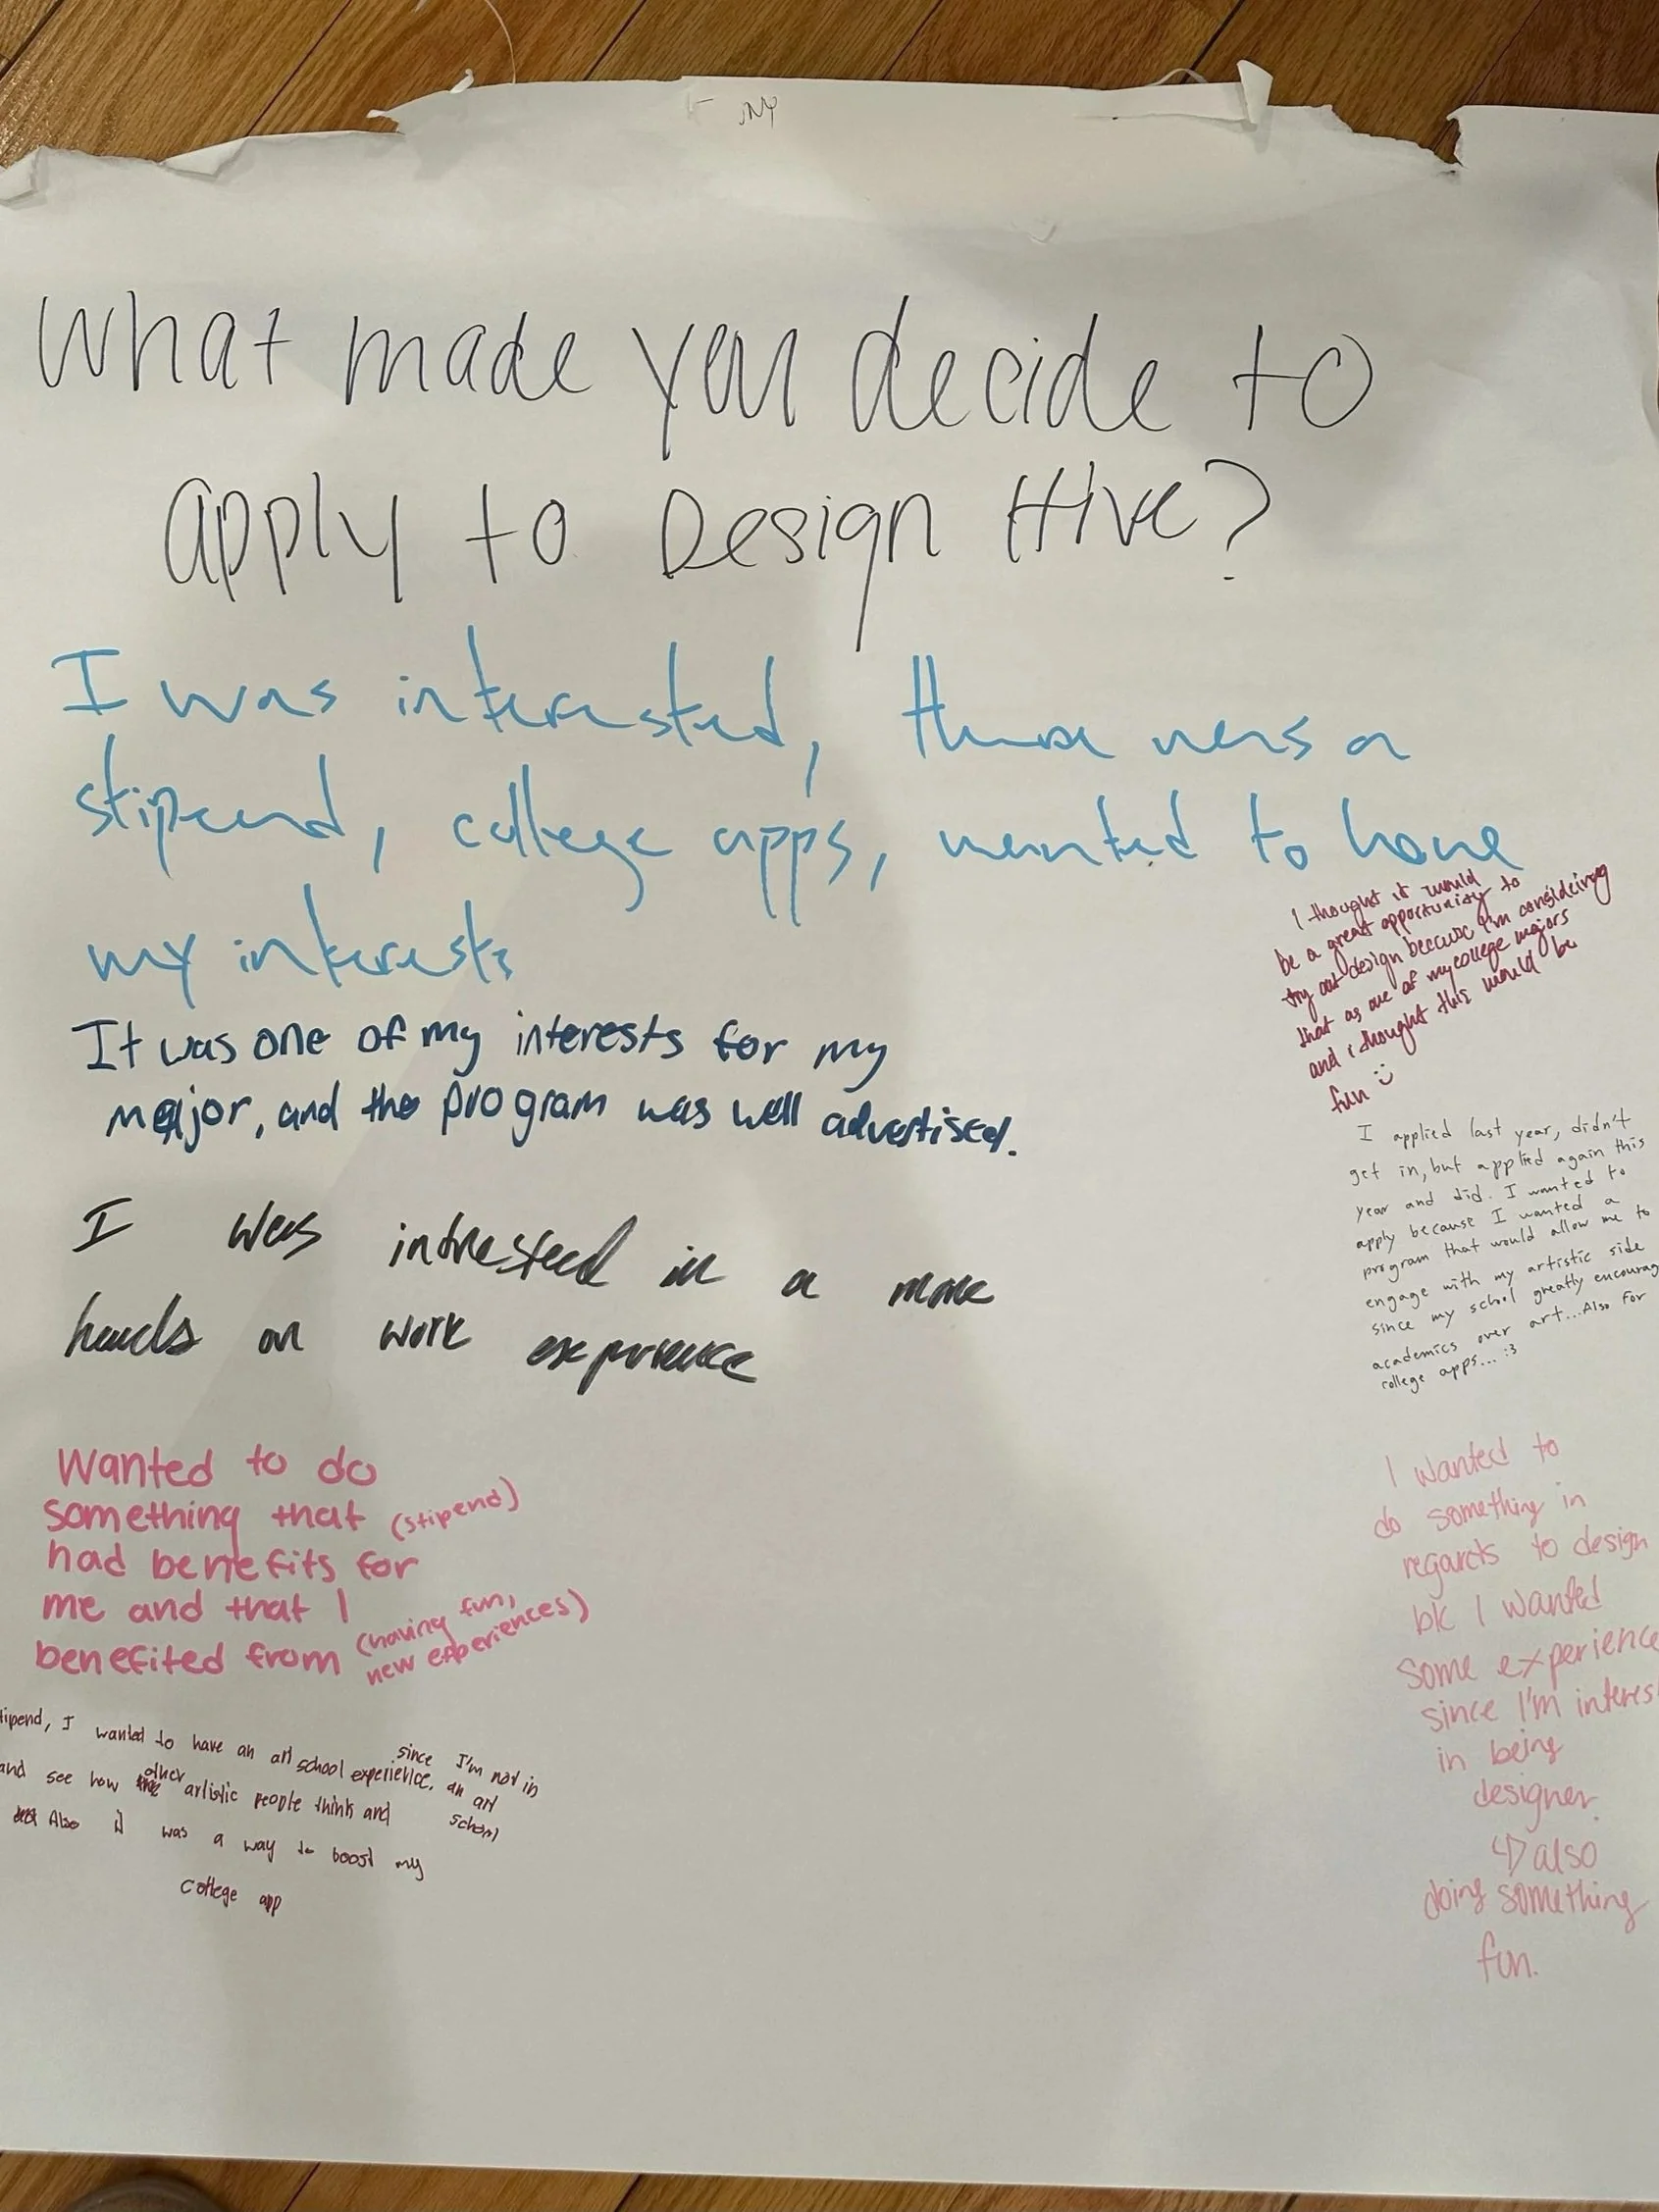 What made you decide to
apply to Design Hive?
I was interested, there was a
stipend, college apps, wanted to have
my interests
It was one of my interests for my
major, and the program was well advertised.
I was intrested in a more
hands on work experience
Wanted to do
something that (stipend)
had benefits for
me and that I
benefited from (having fun,
new experiences)
tipend, I wanted to have an art school experience, since I'm not in
an art
school
and see how other artistic people think and
Also it was a way to boost my
college app
I thought it would
be a great opportunity to
try out design because I'm considering
that as one of my college majors
and i thought this would be
fun :)
I applied last year, didn't
get in, but applied again this
year and did. I wanted to
apply because I wanted a
program that would allow me to
engage with my artistic side
since my school greatly encourag
academics over art...Also for
college apps... :3
I wanted to
do something in
regards to design
bk I wanted
some experience
since I'm interes
in being
designer.
↳ also
doing something
fun.